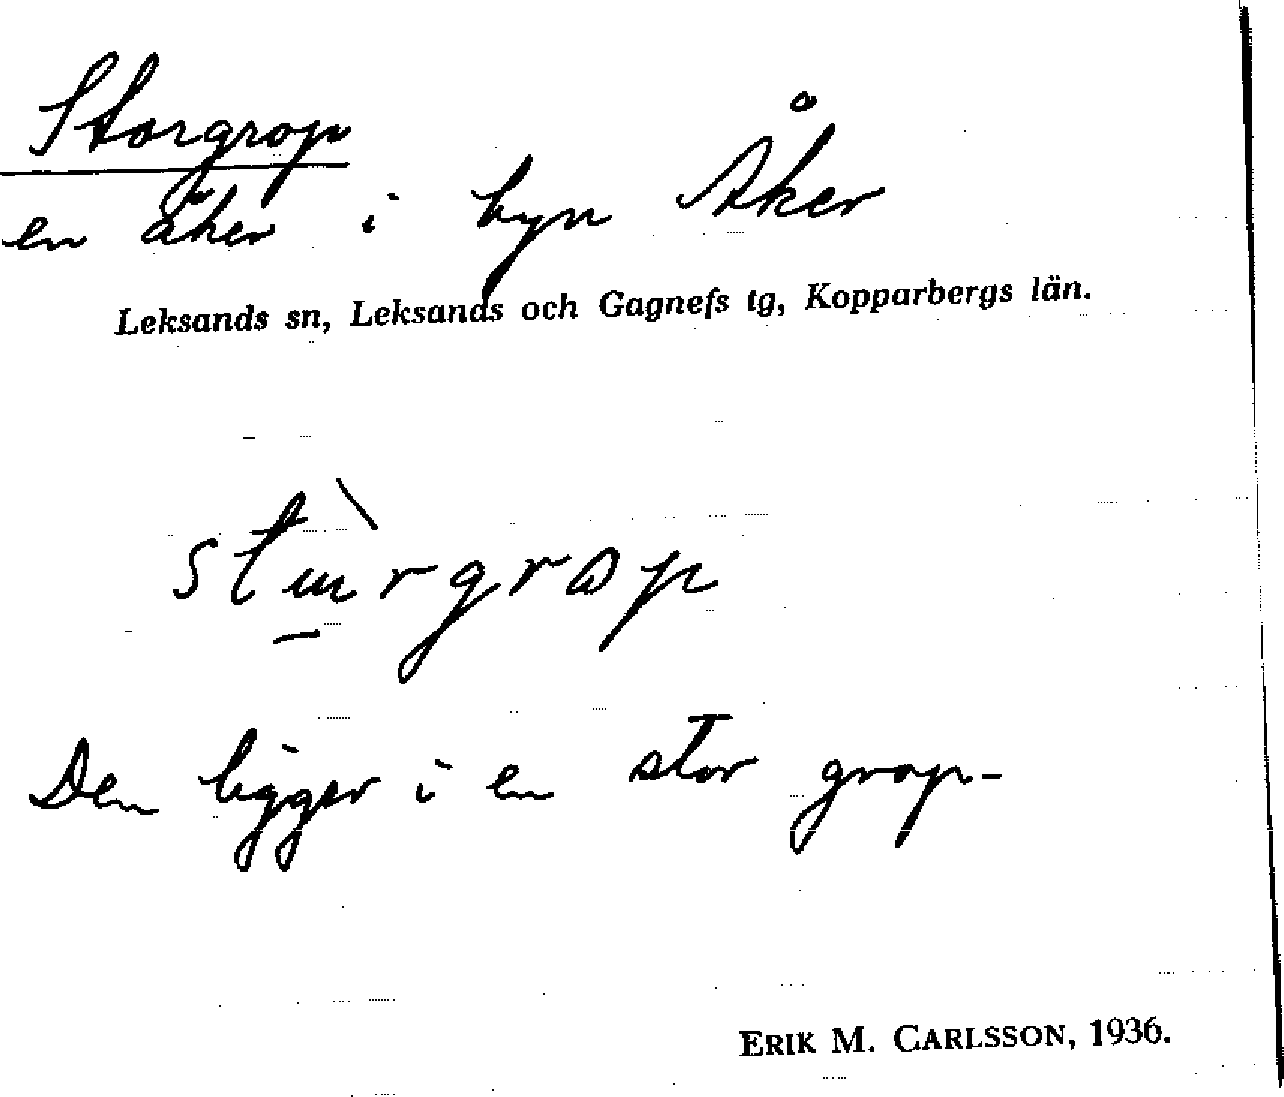 Storgrop
en åker i byn Åker
Leksands sn, Leksands och Gagnefs tg, Kopparbergs län.
stùrgrop
Den ligger i en stor grop-
ERIK M. CARLSSON, 1936.